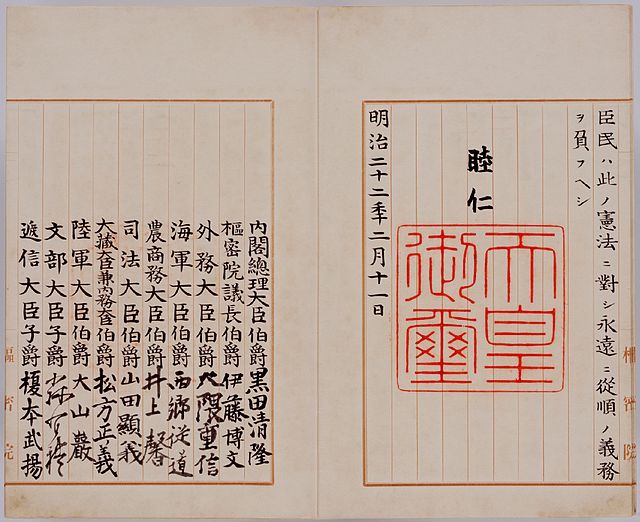 臣民ハ此ノ憲法ニ對シ永遠ニ從順ノ義務
ヲ負フヘシ
睦仁
天皇
御璽
明治二十二年二月十一日
内閣總理大臣伯爵黒田清隆
樞密院議長伯爵伊藤博文
外務大臣伯爵大隈重信
海軍大臣伯爵西郷従道
農商務大臣伯爵井上馨
司法大臣伯爵山田顯義
大藏大臣兼内務大臣伯爵松方正義
陸軍大臣伯爵大山巌
文部大臣子爵
遞信大臣子爵榎本武揚
樞密院